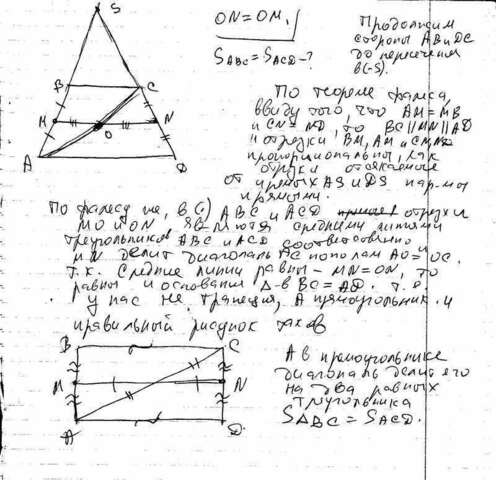 ON=OM.
S ABC = S ACD - ?
Продолжим
стороны AB и DC
до пересечен
в (·S).
По теореме Фалеса,
ввиду того, что AM=MB
и CN=ND, то BC||MN||AD
и отрезки BM, AM и CN, ND
пропорциональны, как
отрезки отсекаемые
от прямых AS и DS пар-ми
прямыми.
По Фалесу же, в (·) ABC и ACD отрезки
MO и ON являются средними линиями
треугольников ABC и ACD соответственно и
MN делит диагональ AC пополам AO = OC.
т.к. средние линии равны - MO=ON, то
равны и основания Δ-в BC = AD. т.е.
у нас не трапеция, а прямоугольник и
правильный рисунок таков
А в прямоугольнике
диагональ делит его
на два равных
треугольника
S ABC = S ACD.
S
B C
M N
O
A D
B C
M N
A D